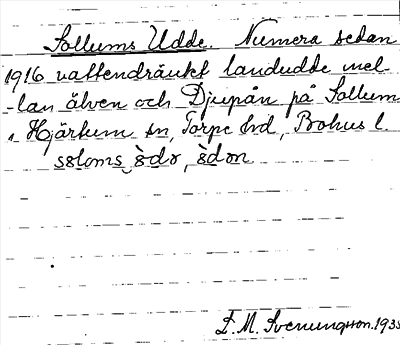 Sollums Udde. Numera sedan
1916 vattendränkt landudde mel-
-lan älven och Djupån på Sollum
i Hjärtum sn, Torpe hd, Bohus l.
sɛloms èdə, èdən
F. M. Svenungsson. 1935